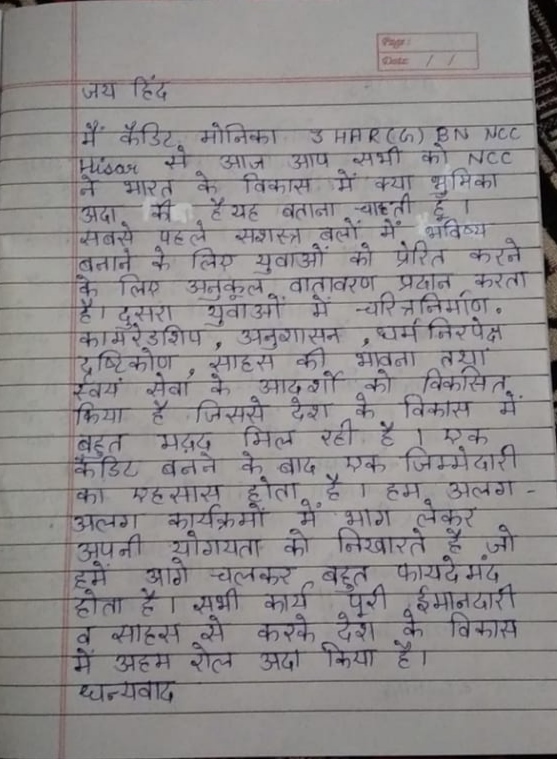 Page:
Date: / /
जय हिंद
मैं कैडिट मोनिका 3 HAR(G) BN NCC
Hisar से आज आप सभी को NCC
ने भारत के विकास में क्या भुमिका
अदा की है यह बताना चाहती हूँ ।
सबसे पहले सशस्त्र बलों में भविष्य
बनाने के लिए युवाओं को प्रेरित करने
के लिए अनुकूल वातावरण प्रदान करता
है। दुसरा युवाओं में चरित्रनिर्माण,
कामरेडशिप, अनुशासन, धर्म निरपेक्ष
दृष्टिकोण, साहस की भावना तथा
स्वयं सेवा के आदर्शों को विकसित
किया है जिससे देश के विकास में
बहुत मद्दद मिल रही है । एक
कैडिट बनने के बाद एक जिम्मेदारी
का एहसास होता है । हम अलग -
अलग कार्यक्रमों में भाग लेकर
अपनी योगयता को निखारते है जो
हमें आगे चलकर बहुत फायदेमंद
होता है। सभी कार्य पूरी ईमानदारी
व साहस से करके देश के विकास
में अहम रोल अदा किया है।
धन्यवाद